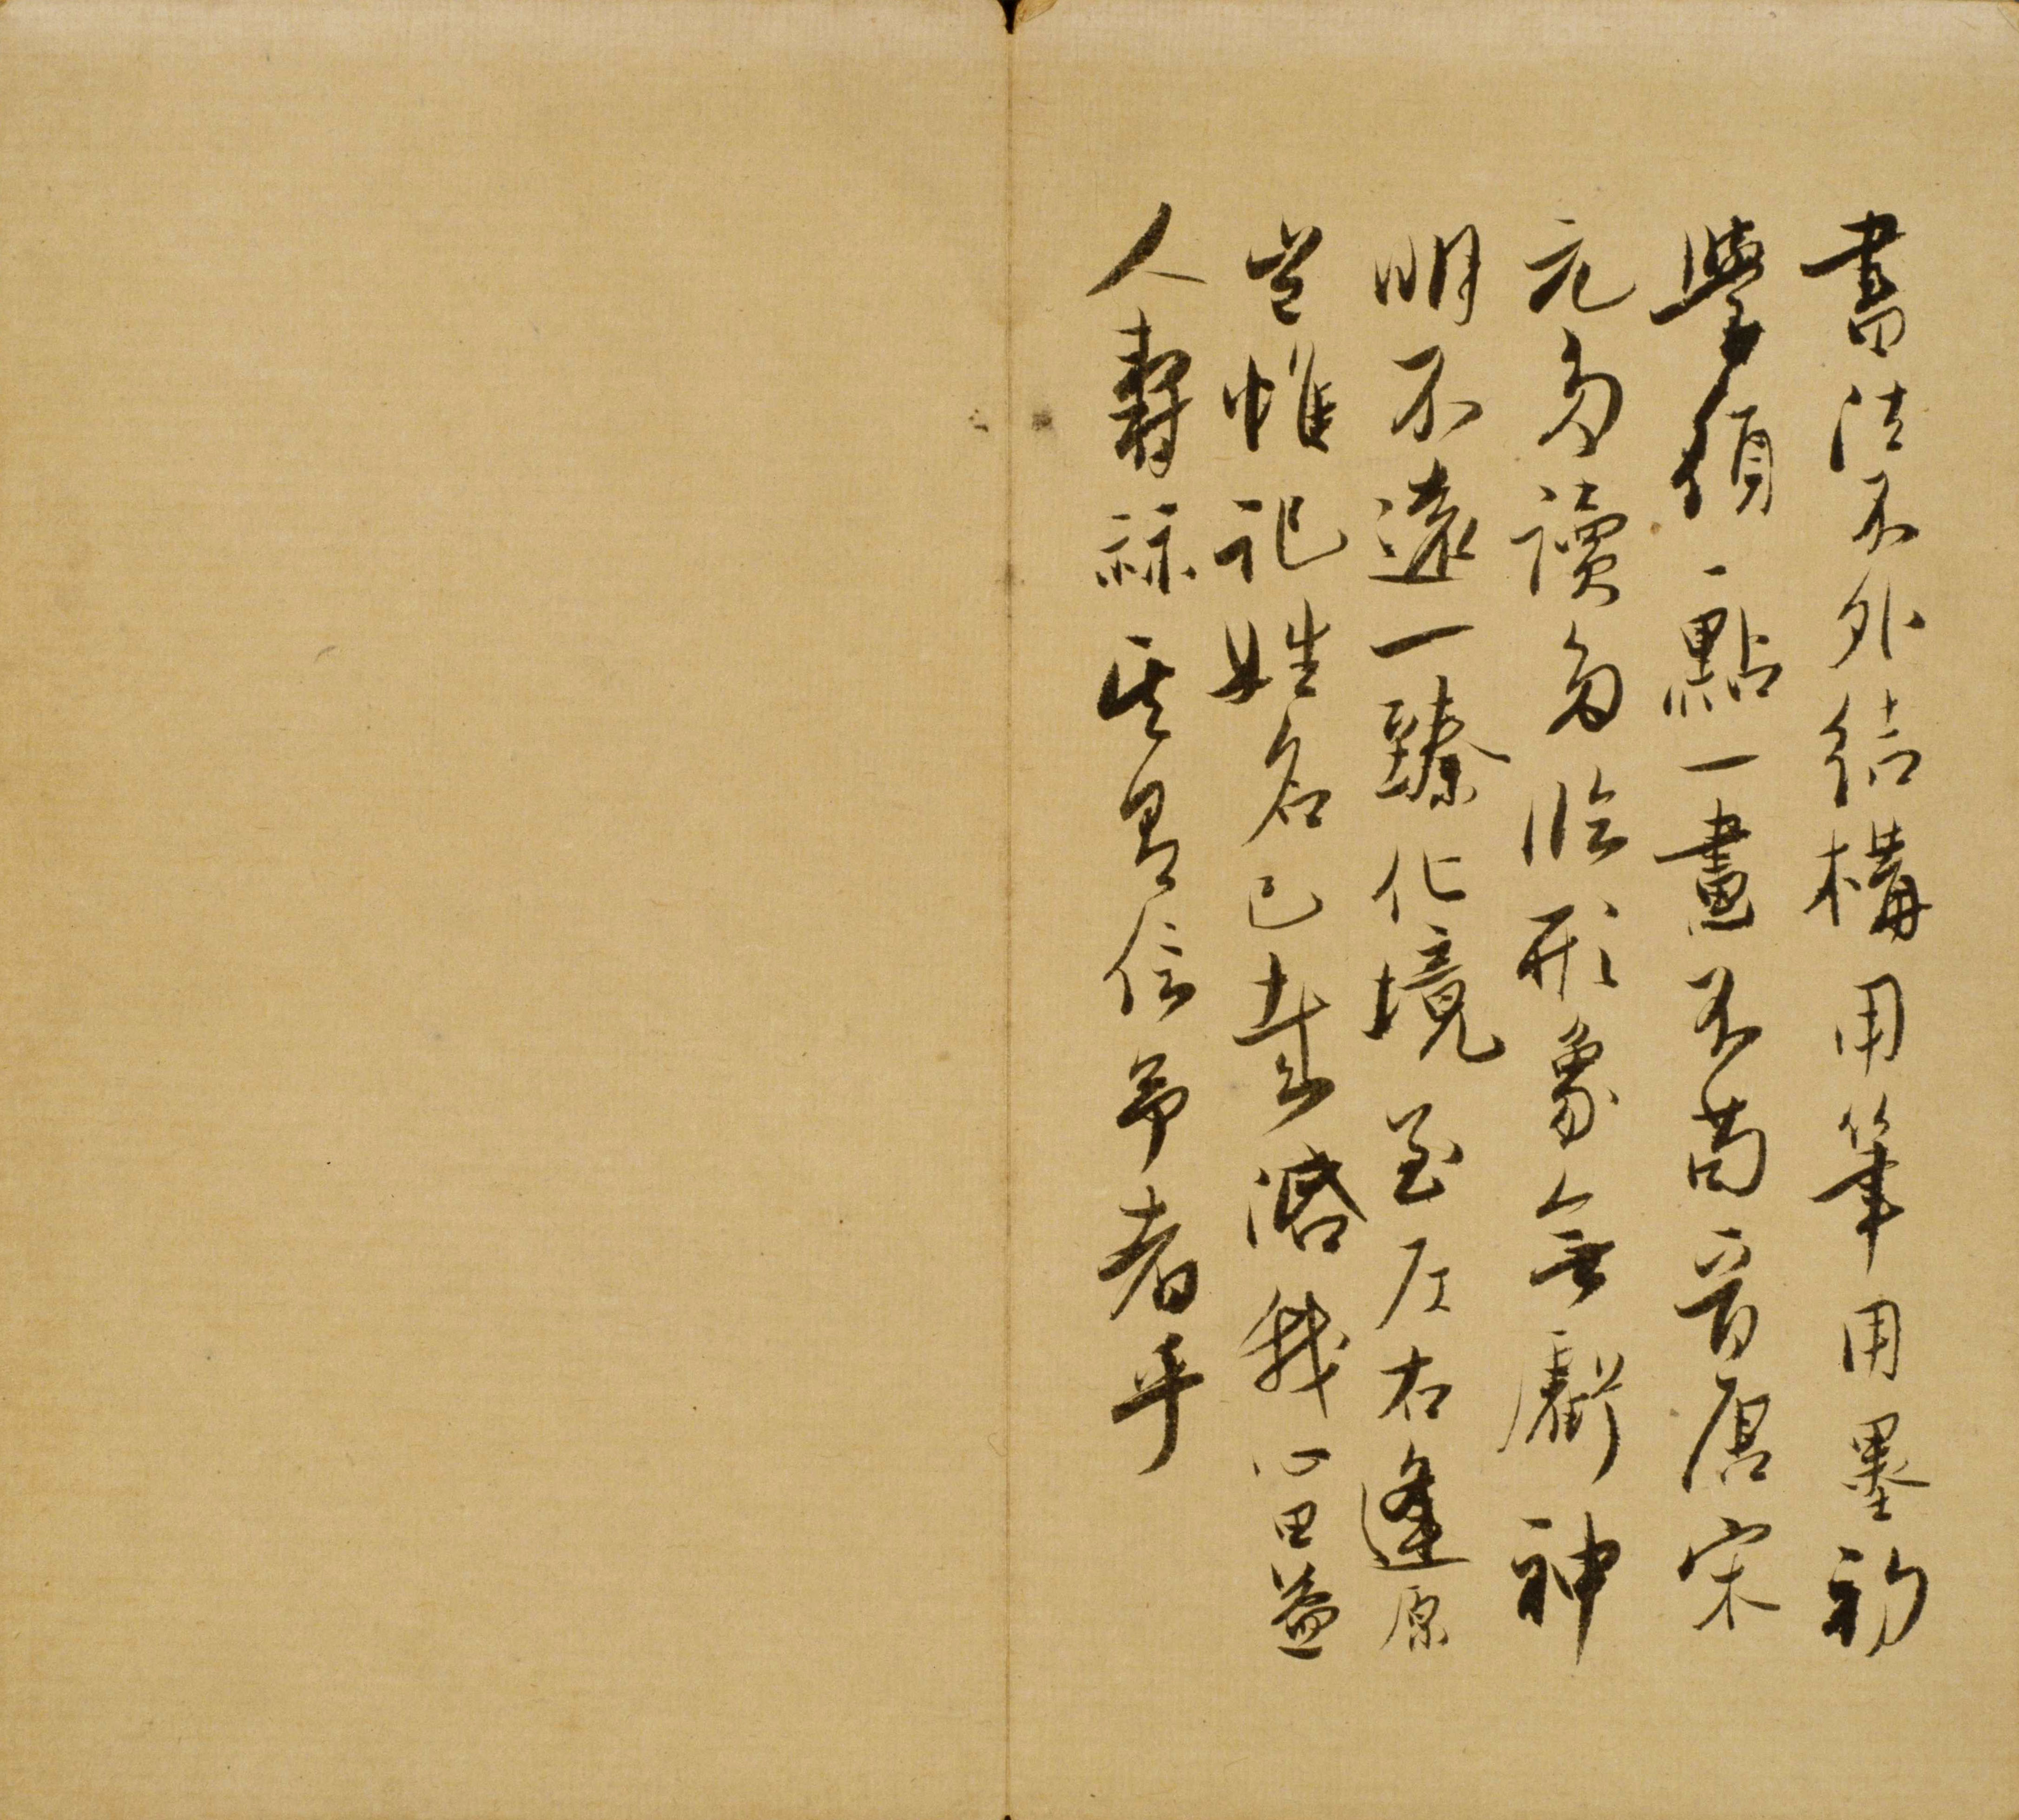 書法不外結構用筆用墨初
學須一點一畫不苟晉唐宋
元多讀多臨形象無虧神
明不遠一臻化境至左右逢原
豈惟記姓名已哉濬我心田益
人壽祺其果信予者乎